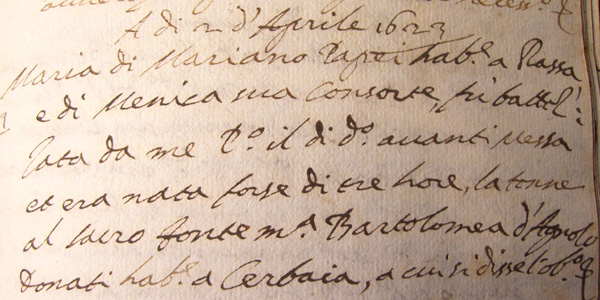 A di 2 d'Aprile 1623
Maria di Mariano Papei hab.e a Rassa
e di Menica sua Consorte, fù battez:
zata da me P.o il di d.o avanti Messa
et era nata forse di tre hore, la tenne
al sacro fonte m.a Bartolomea d'Agnolo
Donati hab.e a Cerbaia, a cui si disse l'ob.o